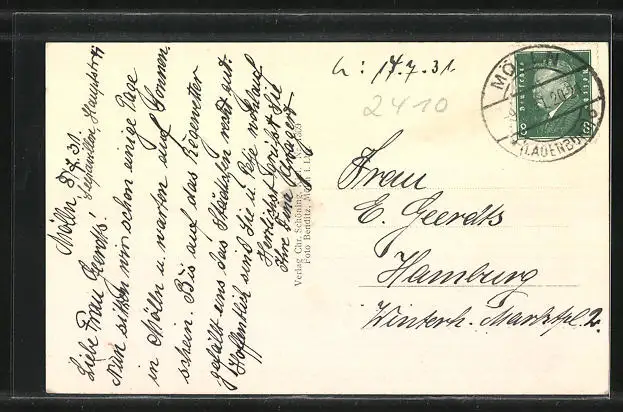 Mölln 8.7.31.
Liebe Frau Geerdts!
Nun sitzen wir schon einige Tage
in Mölln u. warten auf Sonnen-
schein. Bis auf das Regenwetter
gefällt uns das Städtchen recht gut.
Hoffentlich sind Sie u. Ilse wohlauf
Herzlichst grüßt Sie
Ihre
Verlag Chr. Schöning,
Foto Benditz, Mölln i. L.
b: 14.7.31.
2410
MÖLLN
(LAUENBURG)
Deutsches Reich
8 8
Frau
E. Geerdts
Hamburg
Winterh. Marktpl. 2.